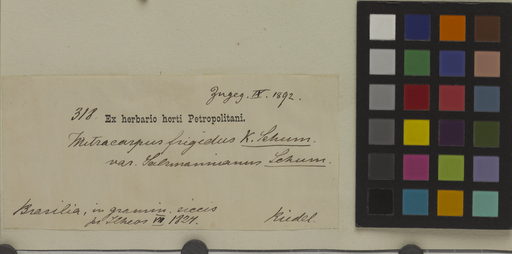 Zugeg. IX. 1892.
318 Ex herbario horti Petropolitani.
Mitracarpus frigidus K. Schum.
var. Salzmannianus Schum.
Brasilia, in gramin. siccis
pr. Ilheos VII 1821. Riedel.